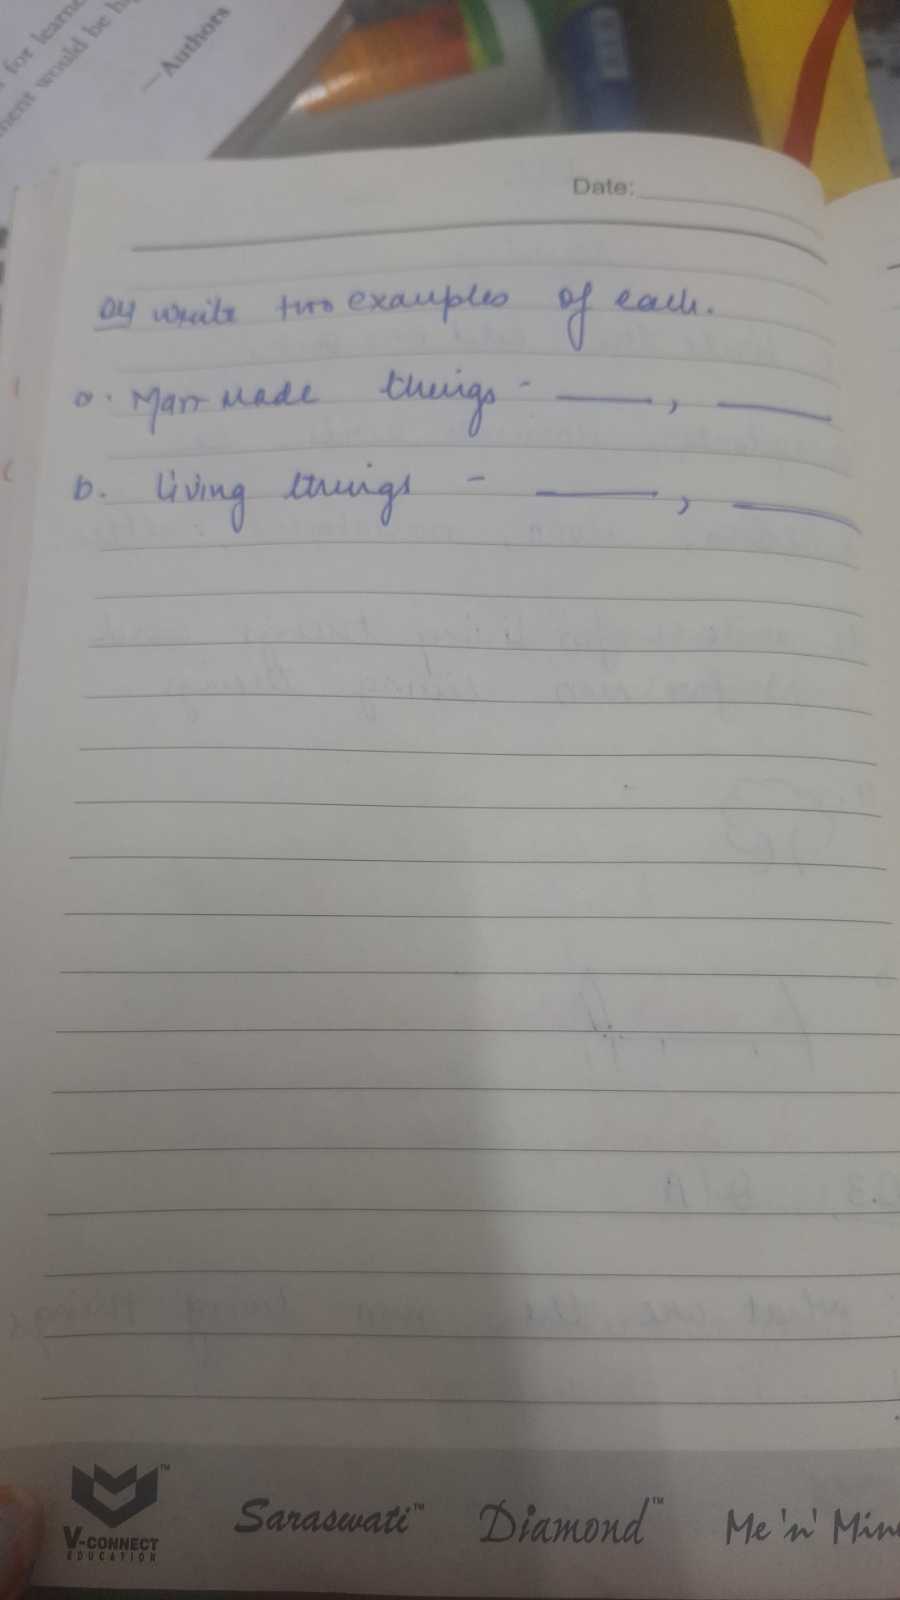 for learne
ment would be hi
—Authors
Date:
Q4 write two examples of each.
a. Man made things - ____, ____
b. living things - ____, ____
V-CONNECT
EDUCATION
Saraswati™
Diamond™
Me 'n' Mine